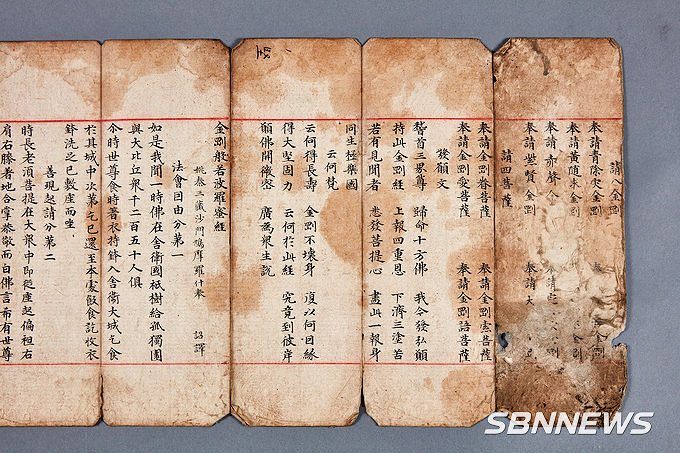 請八金剛
奉請青除灾金剛 奉 金剛
奉請黄随求金剛 金剛
奉請赤聲金 奉請
奉請紫賢金剛 奉請大
請四菩薩
奉請金剛眷菩薩 奉請金剛索菩薩
奉請金剛愛菩薩 奉請金剛語菩薩
發願文
稽首三界尊 歸命十方佛 我今發弘願
持此金剛經 上報四重恩 下濟三塗苦
若有見聞者 悉發菩提心 盡此一報身
同生極樂國
云何梵
云何得長壽 金剛不壞身 復以何因緣
得大堅固力 云何於此經 究竟到彼岸
願佛開微密 廣為衆生說
金剛般若波羅蜜經
姚秦三藏沙門鳩摩羅什奉 詔譯
法會因由分第一
如是我聞一時佛在舍衛國祇樹給孤獨園
與大比丘衆千二百五十人俱
尒時世尊食時著衣持鉢入舍衛大城乞食
於其城中次第乞已還至本處飯食訖收衣
鉢洗足已敷座而坐
善現起請分第二
時長老須菩提在大衆中即從座起偏袒右
肩右膝著地合掌恭敬而白佛言希有世尊
SBNNEWS